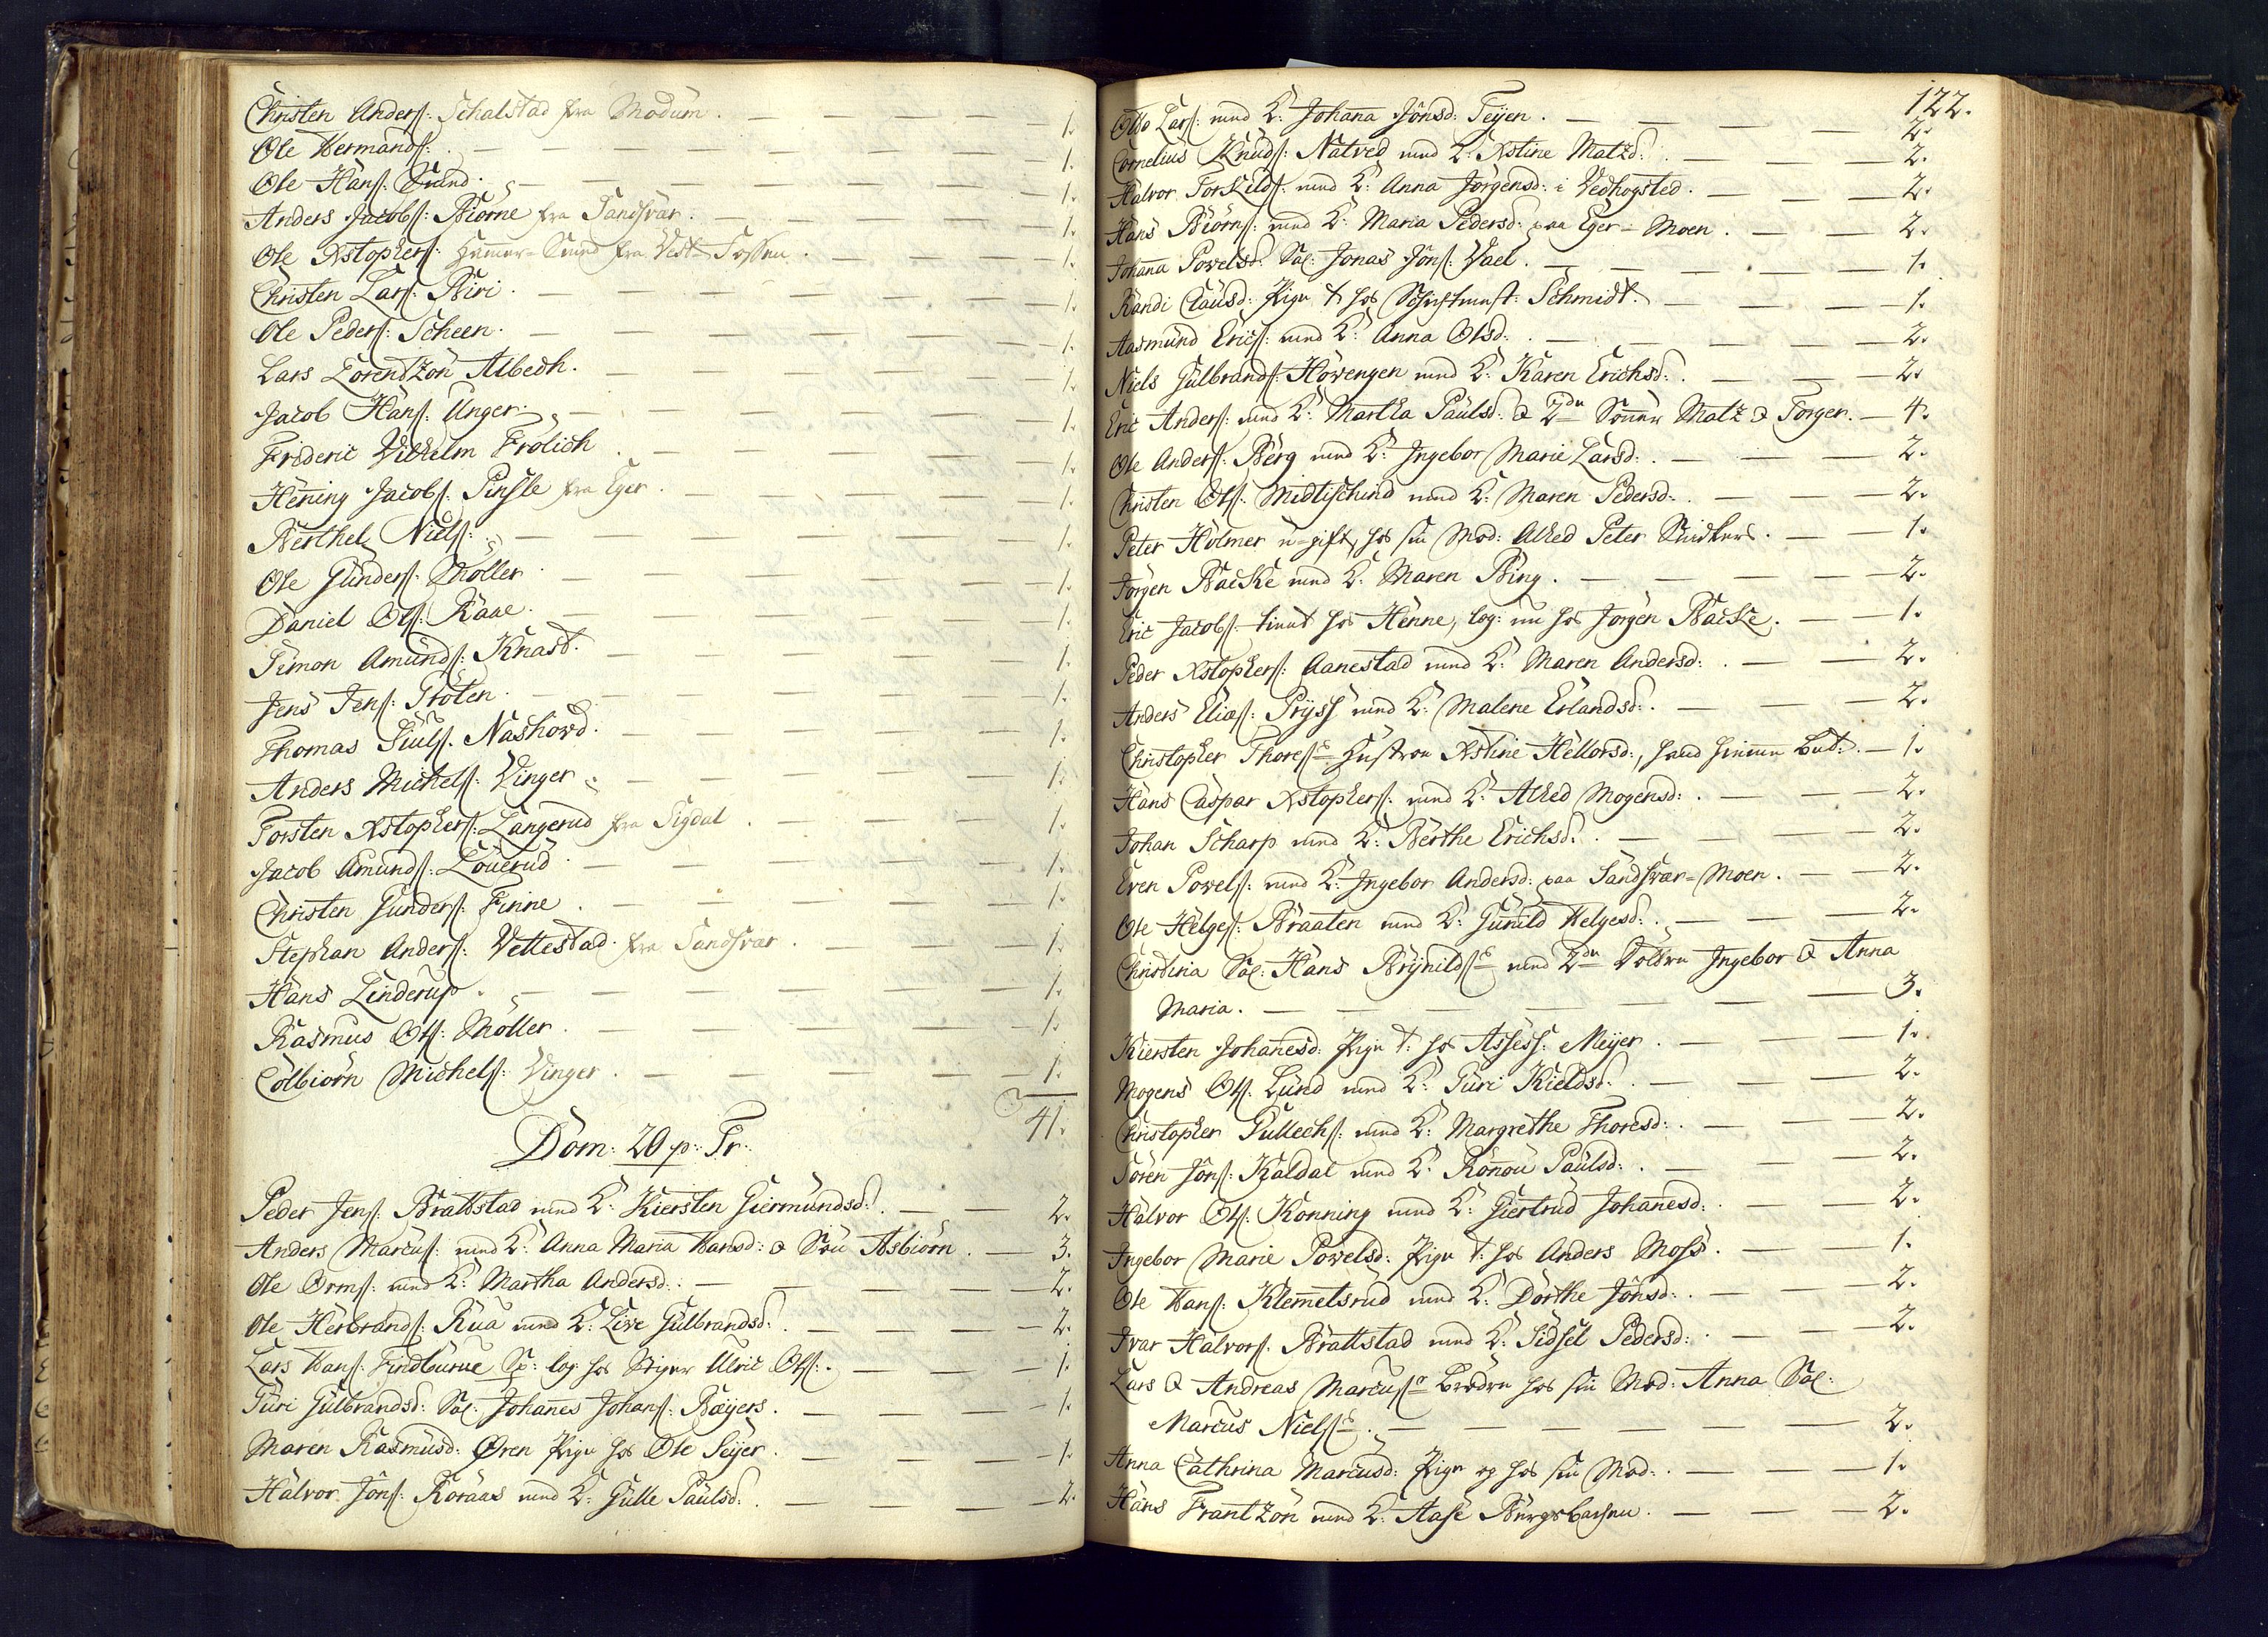 Christen Anders: Schalstad fra Modum. 1.
Ole Hermands: 1.
Ole Hans: Smed. 1.
Anders Jacobs: Biørne fra Sandsvær. 1.
Ole Xstophers: Hammer-Smed fra Vest-Fossen. 1.
Christen Lars: Biri. 1.
Ole Peders: Scheen. 1.
Lars Lorendtzøn Albedh. 1.
Jacob Hans: Unger. 1.
Frideric Vilhelm Frölich 1.
Henning Jacobs: Pinsle fra Eger. 1.
Berthel Niels: 1.
Ole Gunders: Møller 1.
Daniel Ols: Raae. 1.
Simon Amunds: Knast. 1.
Jens Jens: Stöten. 1.
Thomas Siuls: Nashowd. 1.
Anders Michels: Vinger 1.
Torsten Xstophers: Langerud fra Sigdal 1.
Jacob Amunds: Louerud 1.
Christen Gunders: Finne. 1.
Stephan Anders: Vettestad fra Sandsvær. 1.
Hans Linderup. 1.
Rasmus Ols: Møller. 1.
Colbiörn Michels: Vinger. 1.
41.
Dom: 20 p: Tr:
Peder Jens: Brattstad med K: Kiersten Giermundsd: 2.
Anders Marcus: med K: Anna Maria Hansd: & Søn Asbiörn. 3.
Ole Orms: med K: Martha Andersd: 2.
Ole Herbrands: Rua med K: Live Gulbrandsd: 2.
Lars Hans: log: hos Stiger Ulric Ols: 1.
Turi Gulbrandsd: Sal: Johannes Johans: Bøyers. 1.
Maren Rasmusd: Øren Pige hos Ole Seyer. 1.
Halvor Jöns: Roraas med K: Gulle Paulsd: 2.
122.
Otto Lars: med K: Johanna Jönsd: Teyen. 2.
Cornelius Knuds: Natved med K: Xstine Matzd: 2.
Halvor Torkilds: med K: Anna Jørgensd: i Vedhogsted. 2.
Hans Biörns: med K: Maria Pedersd: paa Eger-Moen. 2.
Johanna Povelsd: Sal: Jonas Jöns: Vael. 1.
Randi Clausd: Pige t: hos Schichtmest: Schmidt. 1.
Aasmund Erics: med K: Anna Olsd: 2.
Niels Gulbrands: Hovengen med K: Karen Erichsd: 2.
Eric Anders: med K: Martha Paulsd: & 2de Sønner Matz & Torger. 4.
Ole Anders: Berg med K: Ingebor Marie Larsd: 2.
Christen Ols: Midtischind med K: Maren Pedersd: 2.
Peter Holmer u-gift, hos sin Mod: Alhed Peter Snidkers. 1.
Jørgen Backe med K: Maren Bing. 2.
Eric Jacobs: tient hos Henne, log: nu hos Jørgen Backe. 1.
Peder Xstophers: Aanestad med K: Maren Andersd: 2.
Anders Elias: Pryss med K: Malene Erlandsd: 2.
Christopher Thoress Hustroe Xstine Hellorsd: 1.
Hans Caspar Xstophers: med K: Alhed Mogensd: 2.
Johan Scharp med K: Berthe Erichsd: 2.
Even Povels: med K: Ingebor Andersd: paa Sandsvær-Moen. 2.
Ole Helges: Braaten med K: Gunild Helgesd: 2.
Christina Sal: Hans Brynilds: med 2de Døttre Ingebor & Anna
Maria. 3.
Kiersten Johanesd: Pige t: hos Assess: Meyer. 1.
Mogens Ols: Lund med K: Turi Kieldsd: 2.
Christopher Tullechs: med K: Margrethe Thoresd: 2.
Sören Jöns: Kaldal med K: Ronnou Paulsd: 2.
Halvor Ols: Konning med K: Giertrud Johanesd: 2.
Ingebor Marie Povelsd: Pige t: hos Anders Moss. 1.
Ole Hans: Klemmetsrud med K: Dorthe Jönsd: 2.
Ivar Halvors: Brattstad med K: Sidsel Pedersd: 2.
Lars & Andreas Marcus: Brødre hos sin Mod: Anna Sal:
Marcus Niels: 2.
Anna Cathrina Marcusd: Pige og hos sin Mod: 1.
Hans Frantzøn med K: Aase 2.